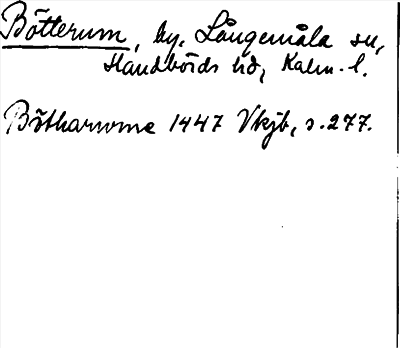 Bötterum, by, Långemåla sn,
Handbörds hd, Kalm. l.
Bötharwme 1447 Vkjb, s. 277.